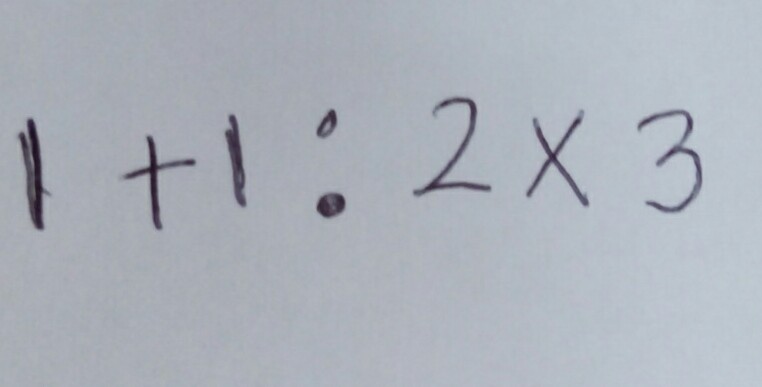 1 + 1 : 2 x 3